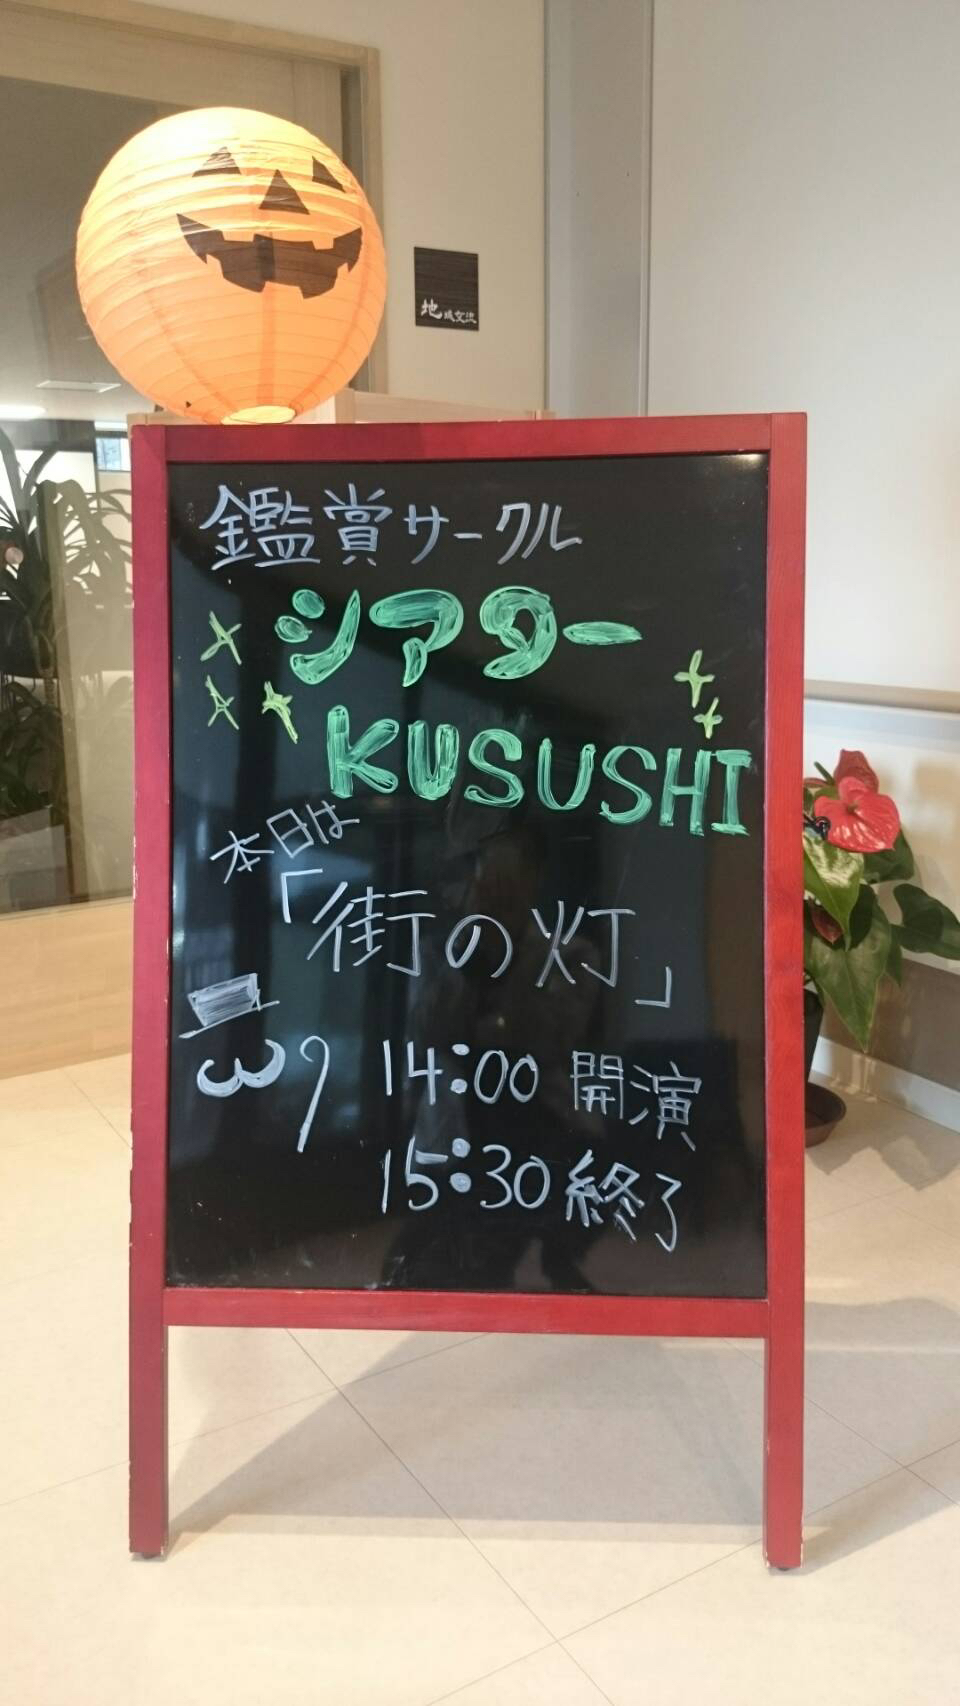 地域交流
鑑賞サークル
シアター
KUSUSHI
本日は
「街の灯」
14:00 開演
15:30 終了